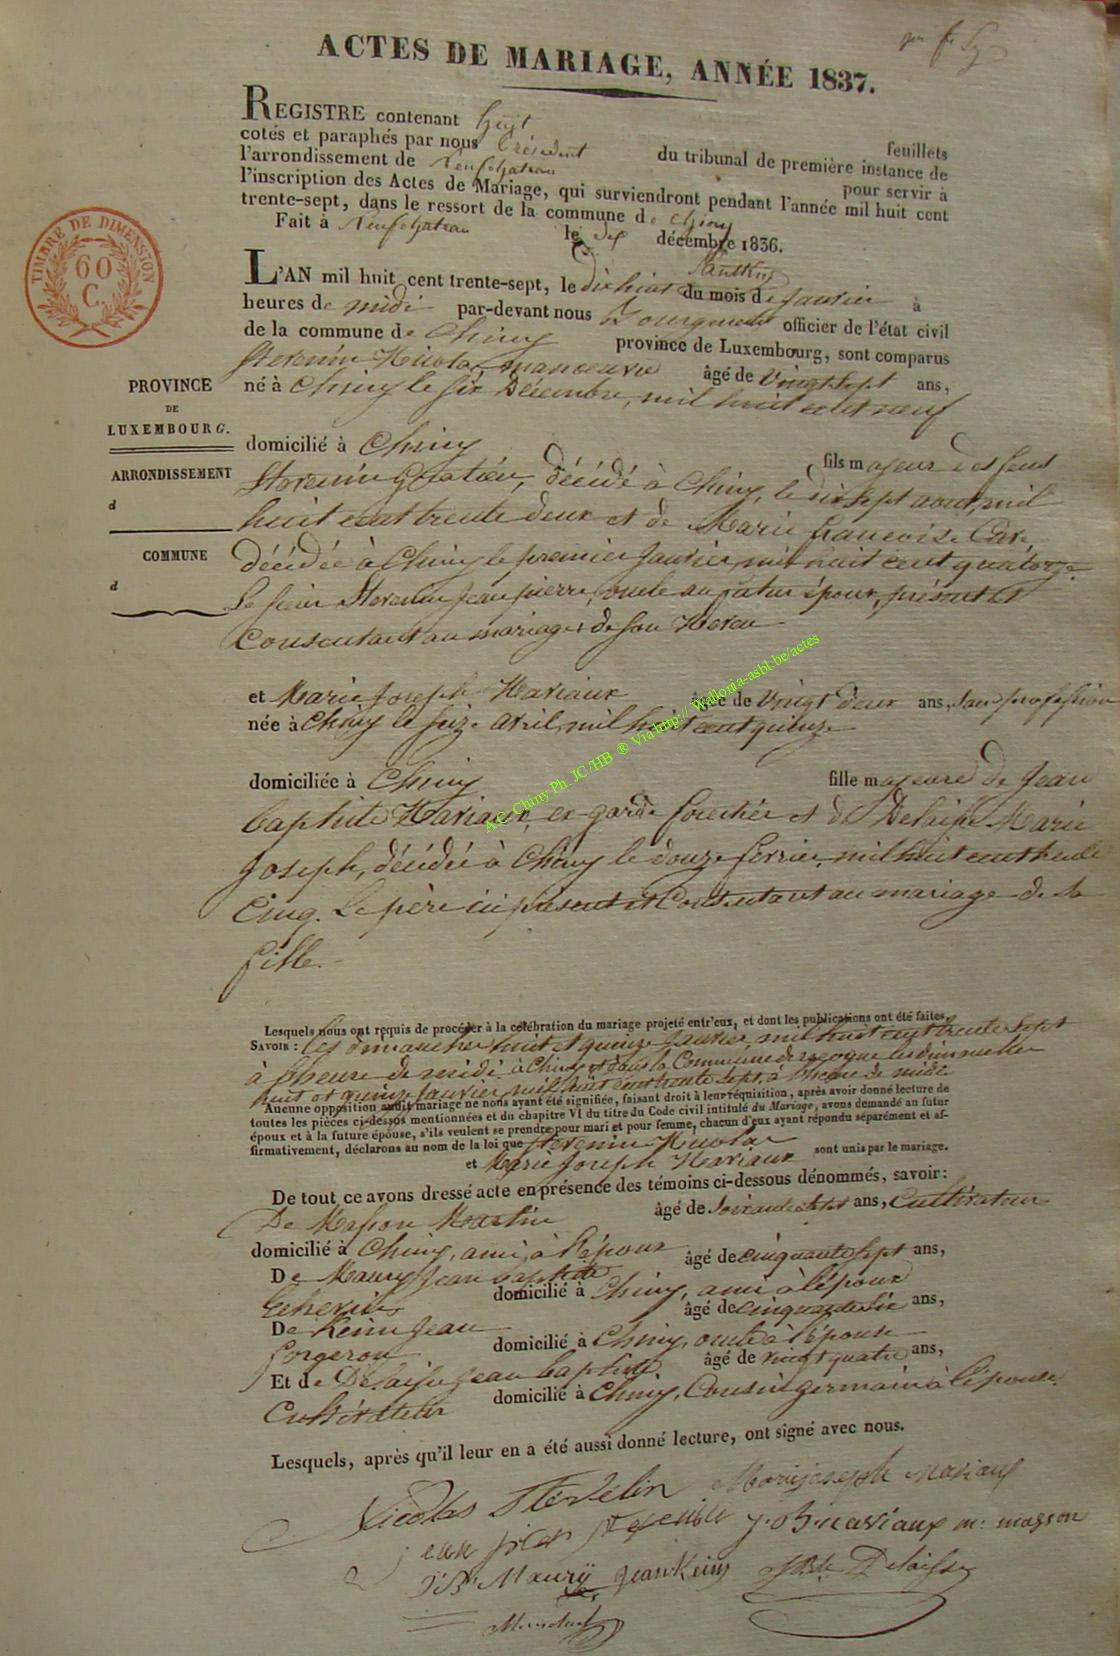 ACTES DE MARIAGE, ANNÉE 1837.
REGISTRE contenant huit feuillets
cotés et paraphés par nous Président du tribunal de première instance de
l'arrondissement de Neufchateau pour servir à
l'inscription des Actes de Mariage, qui surviendront pendant l'année mil huit cent
trente-sept, dans le ressort de la commune de Chiny
Fait à Neufchateau le dix décembre 1836.
TIMBRE DE DIMENSION
60
C.
L'AN mil huit cent trente-sept, le dix huit du mois de Janvier à
heures de midi par-devant nous officier de l'état civil
de la commune de Chiny province de Luxembourg, sont comparus
Nicolas, manoeuvre âgé de Vingt sept ans,
né à Chiny le six Décembre, mil huit cent neuf
PROVINCE
DE
LUXEMBOURG.
domicilié à Chiny fils majeur des feus
ARRONDISSEMENT
d
décédé à Chiny, le dix sept aout, mil
huit cent trente deux et de Marie francoise
COMMUNE
d
décédée à Chiny le premier Janvier, mil huit cent quatorze.
Le sieur Jean pierre, oncle au futur époux, présent et
Consentant au mariage de son Neveu
et Marie Joseph Naviaux âgée de Vingt deux ans, sans profession
née à Chiny le seize avril, mil huit cent quinze
domiciliée à Chiny fille majeure de Jean
baptiste Naviaux, ex-garde forestier et de Delaisse Marie
Joseph, décédée à Chiny le douze fevrier, mil huit cent trente
Cinq. Le père ici présent et Consentant au mariage de sa
fille.
A.C. Chiny Ph. JC/HB ® Via http://Wallonia-asbl.be/actes
Lesquels nous ont requis de procéder à la célébration du mariage projeté entr'eux, et dont les publications ont été faites,
SAVOIR : les dimanches huit et quinze Janvier, mil huit cent trente sept
à l'heure de midi à Chiny et dans la Commune de les dimanches
huit et quinze Janvier, mil huit cent trente sept, à l'heure de midi
Aucune opposition audit mariage ne nous ayant été signifiée, faisant droit à leur réquisition, après avoir donné lecture de
toutes les pièces ci-dessus mentionnées et du chapitre VI du titre du Code civil intitulé du Mariage, avons demandé au futur
époux et à la future épouse, s'ils veulent se prendre pour mari et pour femme, chacun d'eux ayant répondu séparément et af-
firmativement, déclarons au nom de la loi que Nicolas
et Marie Joseph Naviaux sont unis par le mariage.
De tout ce avons dressé acte en présence des témoins ci-dessous dénommés, savoir :
De Masson Martin âgé de soixante sept ans, Cultivateur
domicilié à Chiny, ami à l'époux
De Maury Jean baptiste âgé de cinquante sept ans,
Echevin domicilié à Chiny, ami à l'époux
De Keim Jean âgé de cinquante six ans,
forgeron domicilié à Chiny, oncle à l'épouse
Et de Delaisse Jean baptiste âgé de vingt quatre ans,
Cultivateur domicilié à Chiny, Cousin germain à l'épouse.
Lesquels, après qu'il leur en a été aussi donné lecture, ont signé avec nous.
Nicolas Marie joseph naviaux
jean J. B. naviaux m. masson
J. B. Maury Jean Keim Delaisse